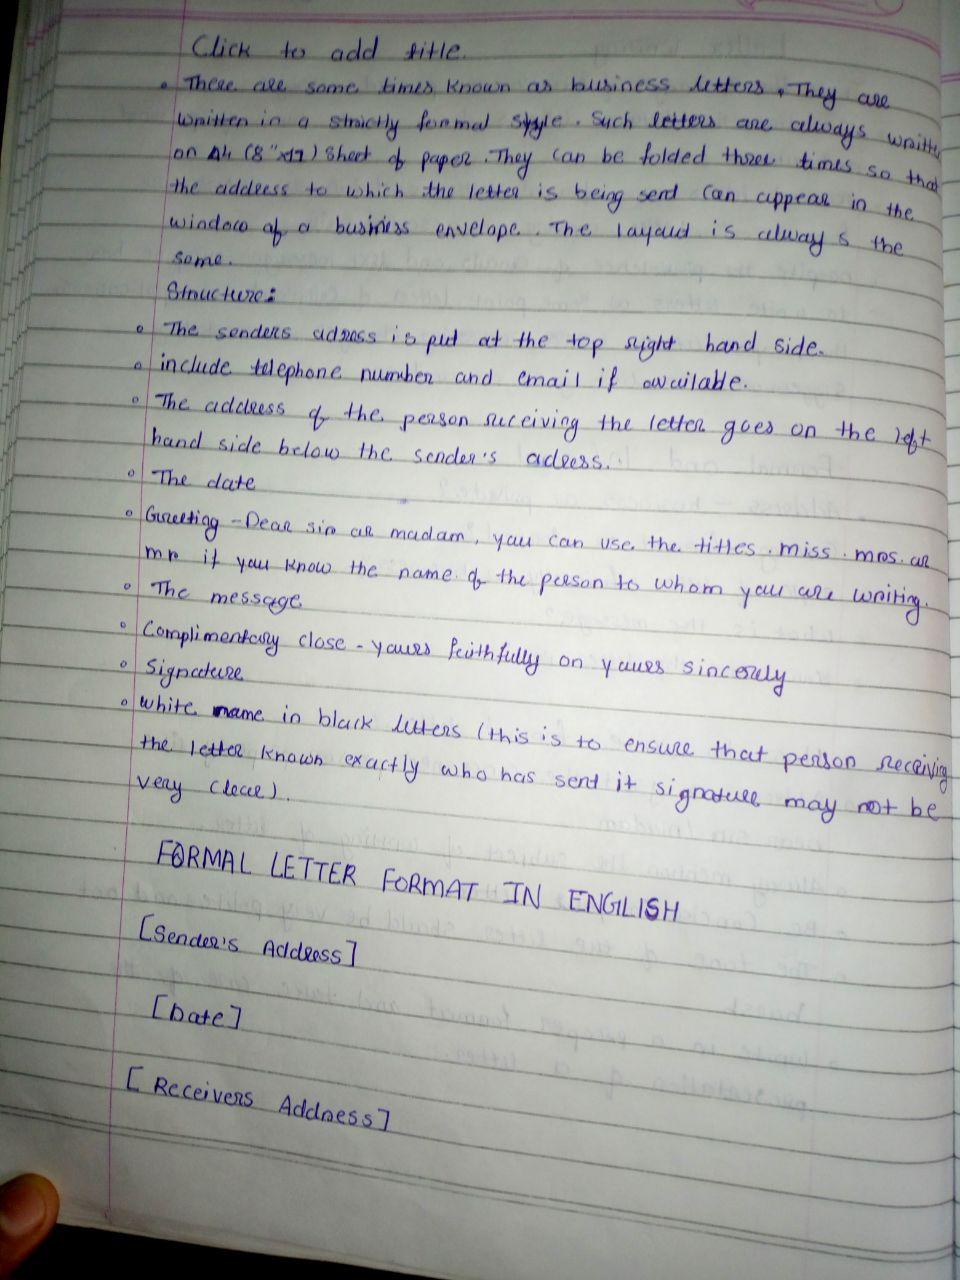 Click to add title.
• There are some times known as business letters. They are
written in a strictly formal style. Such letters are always written
on A4 (8"x17) sheet of paper. They can be folded three times so that
the address to which the letter is being send can appear in the
window of a business envelope. The layout is always the
same.
Structure:
• The senders adress is put at the top right hand side.
• include telephone number and email if available.
• The address of the person receiving the letter goes on the left
hand side below the sender's adress.
• The date
• Greeting - Dear sir or madam, you can use the titles. miss. mrs. or
mr if you know the name of the person to whom you are writing.
• The message
• Complimentary close - yours faithfully on yours sincerely
• Signature
• white name in black letters (this is to ensure that person receiving
the letter known exactly who has sent it signature may not be
very clear).
FORMAL LETTER FORMAT IN ENGLISH
[Sender's Address]
[Date]
[Receivers Address]